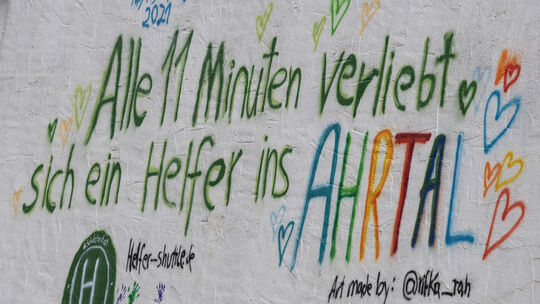 2021
Alle 11 Minuten verliebt
sich ein Helfer ins AHRTAL
Helfer-shuttle.de
H
Art made by: @rifka_rah